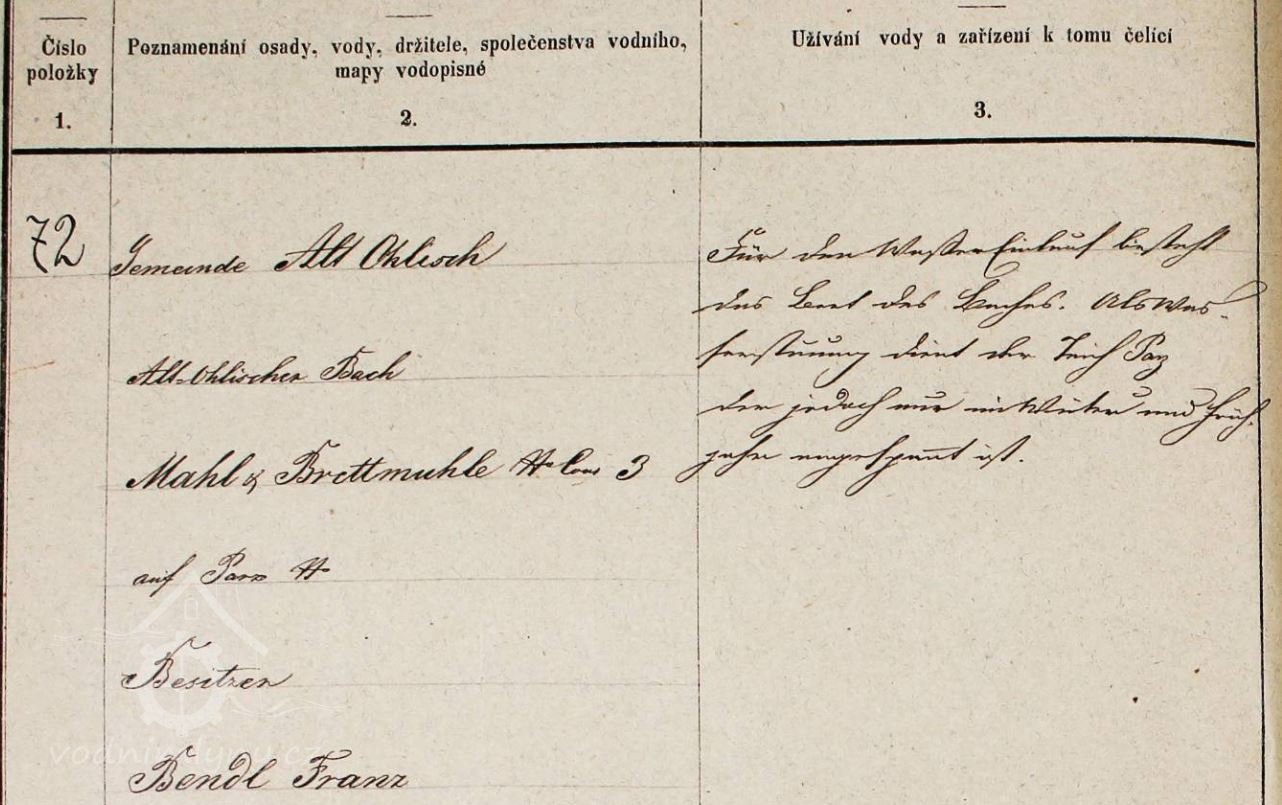 Číslo
položky
1.
Poznamenání osady, vody, držitele, společenstva vodního,
mapy vodopisné
2.
Užívání vody a zařízení k tomu čelící
3.
72
Gemeinde Alt Ohlisch
Alt-Ohlischer Bach
Mahl & Brettmuhle No Cons 3
auf Parz No
Besitzer
Bendl Franz
Für den Wasser Einlauf besteht
das Beet des Baches. Als Was-
serstauung dient der Teich Parz
der jedoch nur im Winter und Früh-
jahr angespannt ist.
vodnimlyny.cz